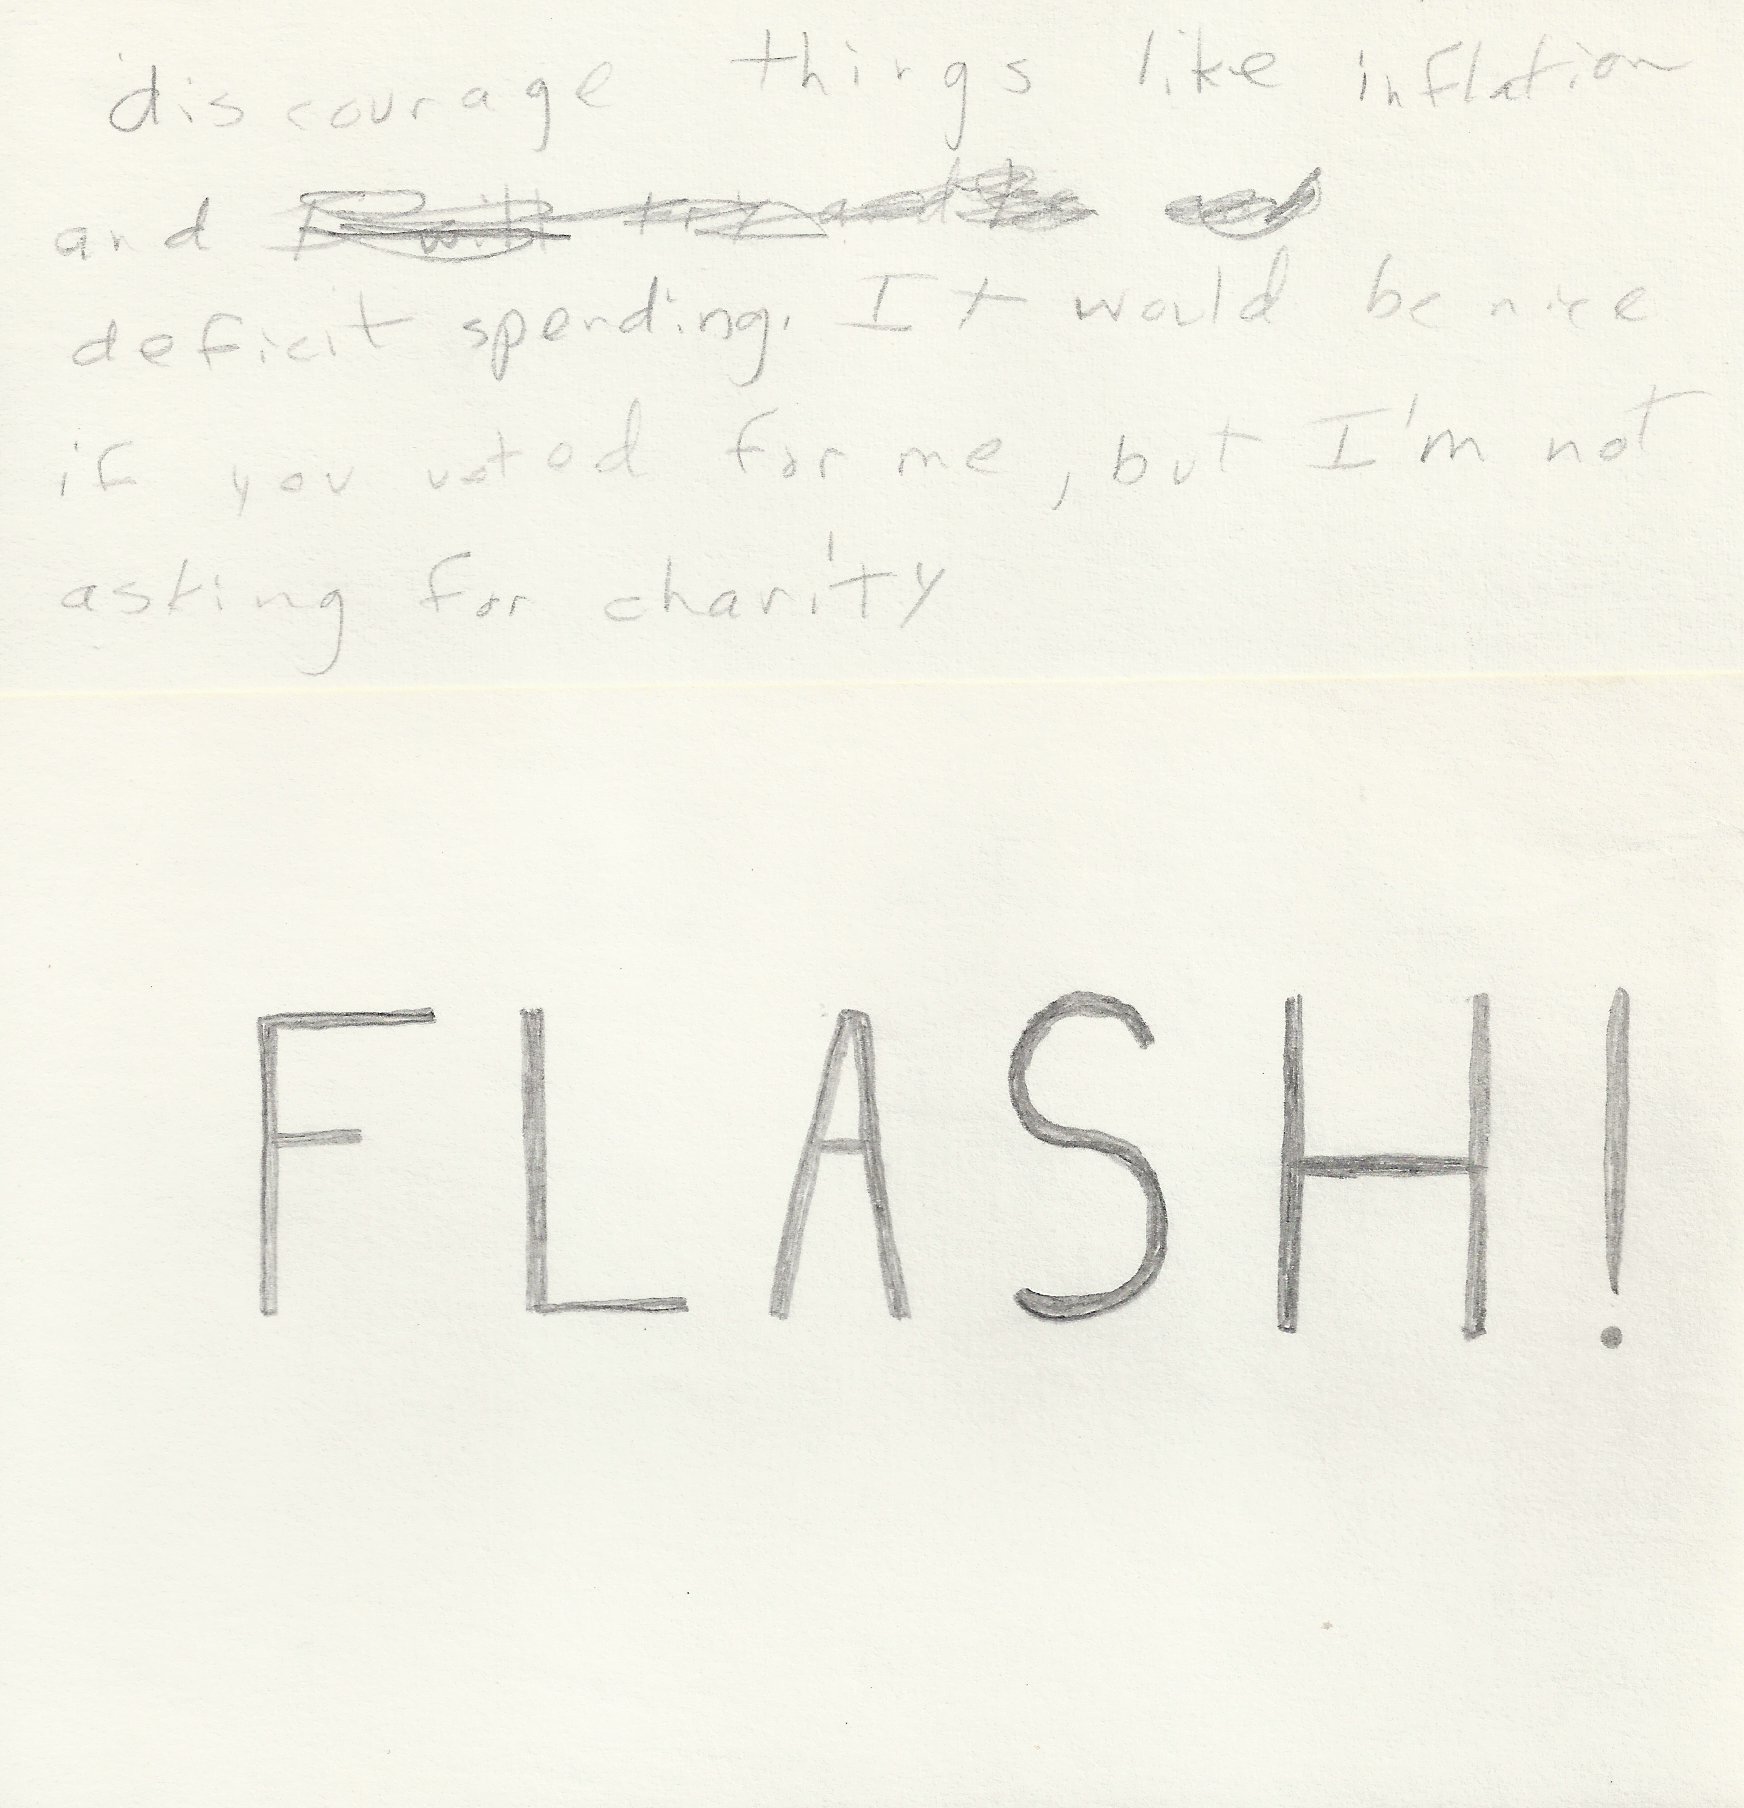 discourage things like inflation
and
deficit spending. It would be nice
if you voted for me, but I'm not
asking for charity
FLASH!